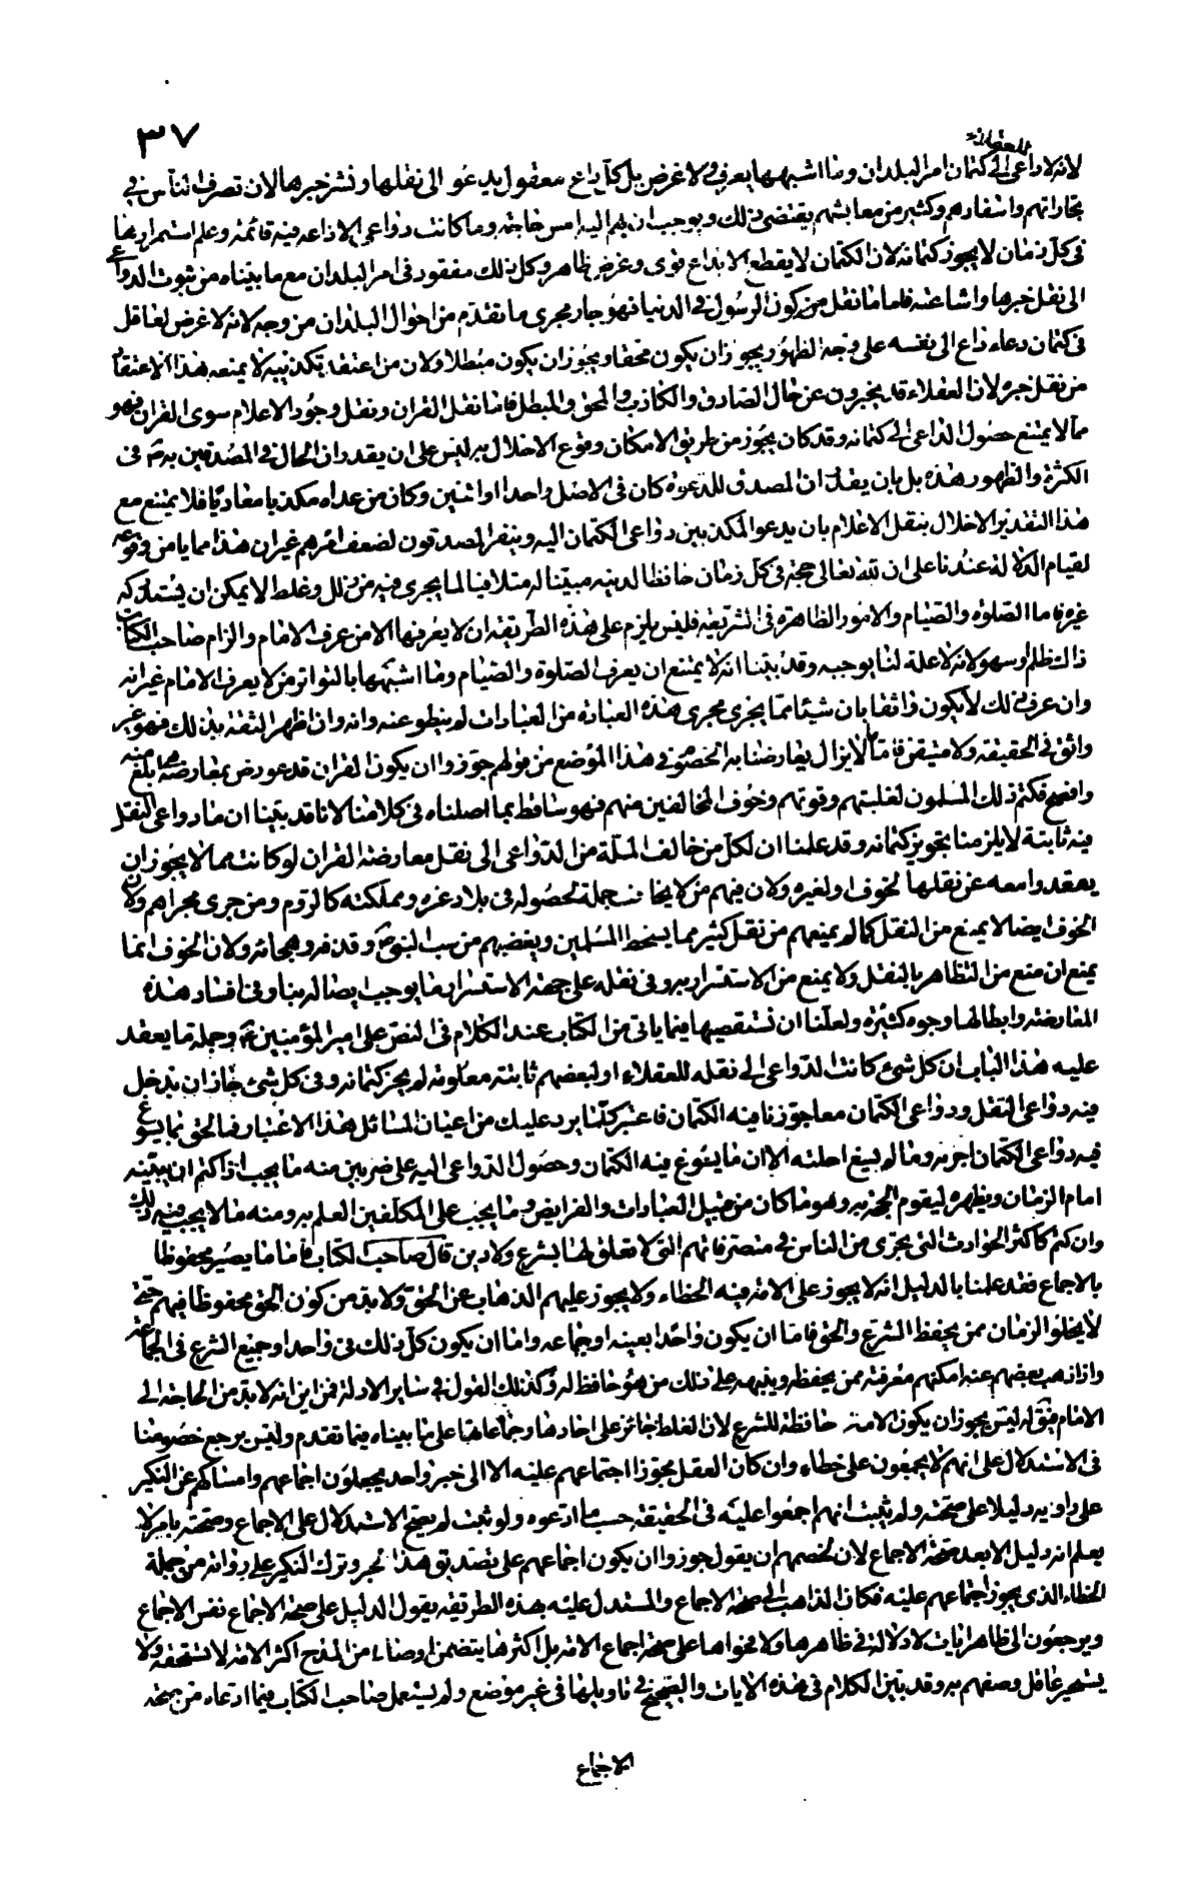 ٣٧
للعقلاء
لانه لا داعى الى كتمان امر البلدان وما اشبهها يعرف ولا غرض بل كل داع معقول يدعو الى نقلها ونشر خبرها لان تصرف الناس فى
تجاراتهم واسفارهم وكثير من معايشهم يقتضى ذلك ويوجب ان بهم اليه امس حاجة وما كانت دواعى الاذاعه فيه قائمة وعلم استمرارها
فى كل زمان لا يجوز كتمانه لان الكتمان لا يقع الا بداع قوى وغرض ظاهر وكل ذلك مفقود فى امر البلدان مع ما بيناه من ثبوت الدواعى
الى نقل خبرها واشاعته فاما ما نقل من كون الرسول فى الدنيا فهو جار مجرى ما تقدم من احوال البلدان من وجه لانه لا غرض لعاقل
فى كتمان دعاء داع الى نفسه على وجه الظهور يجوز ان يكون محقا ويجوز ان يكون مبطلا ولان من اعتقد تكذيبه لا يمنعه هذا الاعتقاد
من نقل خبره لان العقلاء قد يخبرون عن حال الصادق والكاذب والمحق والمبطل فاما نقل القران ونقل وجود الاعلام سوى القران فهو
مما لا يمتنع حصول الداعى الى كتمانه وقد كان يجوز من طريق الامكان وقوع الاخلال به ليس على ان يقدر ان الحال فى المصدقين به فى
الكثرة والظهور هذه بل بان يقدر ان المصدق للدعوة كان فى الاصل واحدا او اثنين وكان من عداه مكذبا معاديا فلا يمتنع مع
هذا التقدير الاخلال بنقل الاعلام بان يدعو المكذبين دواعى الكتمان اليه ويفتر المصدقون لضعف امرهم غير ان هذا مما يامن وقوعه
لقيام الدلالة عندنا على ان لله تعالى حجة فى كل زمان حافظا لدينه مبينا له متلافيا لما يجرى فيه من زلل وغلط لا يمكن ان يستدركه
غيره فاما الصلوة والصيام والامور الظاهرة فى الشريعة فليس يلزم على هذه الطريقة ان لا يعرفها الا من عرف الامام والزام صاحب الكتاب
ذلك ظلم او سهو لانه لا علة لنا توجبه وقد بينا انه لا يمتنع ان يعرف الصلوة والصيام وما اشبهها بالتواتر من لا يعرف الامام غير انه
وان عرف ذلك لا يكون واثقا بان شيئا مما يجرى مجرى هذه العبادة من العبادات لم ينطو عنه وانه وان اظهر الثقة بذلك فهو غير
واثق فى الحقيقة ولا متيقن فاما ما لا يزال يعارضنا به الخصوم فى هذا الموضع من قولهم جوزوا ان يكون القران قد عورض بمعارضة هى ابلغ منه
وافصح فكتم ذلك المسلمون لغلبتهم وقوتهم وخوف المخالفين منهم فهو ساقط بما اصلناه فى كلامنا لانا قد بينا ان ما دواعى النقل
فيه ثابتة لا يلزمنا تجويز كتمانه وقد علمنا ان لكل من خالف الملة من الدواعى الى نقل معارضة القران لو كانت مما لا يجوز ان
يعقد وامعه عن نقلها لخوف او لغيره ولان فيهم من لا يخاف جملة لحصوله فى بلاد عزه ومملكته كالروم ومن جرى مجراهم ولان
الخوف ايضا لا يمنع من النقل كما لم يمنعهم من نقل كثير مما يسخط المسلمين ويغضبهم من سب النبى وقذفه وهجائه ولان الخوف انما
يمنع ان منع من التظاهر بالنقل ولا يمنع من الاستسرار به وفى نقله على جهة الاستسرار ما يوجب ايصاله بنا وفى افساد هذه
المعارضة وابطالها وجوه كثيرة ولعلنا ان نستقصيها فيما ياتى من الكتاب عند الكلام فى النص على امير المؤمنين ع وجملة ما يعقد
عليه هذا الباب ان كل شئ كانت الدواعى الى نقله للعقلاء او لبعضهم ثابتة معلومة لم يجز كتمانه وفى كل شئ جاز ان يدخل
فيه دواعى النقل ودواعى الكتمان معا جوزنا فيه الكتمان فاعتبر كلما يرد عليك من اعيان المسائل هذا الاعتبار فالحق بما يسوغ
فيه دواعى الكتمان اجزته وما لم يسغ احلته الا ان ما يسوغ فيه الكتمان وحصول الدواعى اليه على ضربين منه ما يجب اذا كتم ان يبينه
امام الزمان ويظهره ليقوم الحجة به وهو ما كان من قبيل العبادات والفرايض وما يجب على المكلفين العلم به ومنه ما لا يجب فيه ذلك
وان كتم كاكثر الحوادث التى يجرى من الناس فى متصرفاتهم التى لا تعلق لها بالشرع ولا دين قال صاحب الكتاب فاما ما يصير محفوظا
بالاجماع فقد علمنا بالدليل انه لا يجوز على الامة فيه الخطاء ولا يجوز عليهم الذهاب عن الحق ولا بد من كون الحق محفوظا فيهم حتى
لا يخلو الزمان ممن يحفظ الشرع والحق فاما ان يكون واحدا بعينه او جماعه واما ان يكون كل ذلك فى واحد او جميع الشرع فى الجماعة
واذا ذهب بعضهم عنه امكنهم معرفته ممن يحفظه وينبهه على ذلك من هو حافظ له وكذلك القول فى ساير الادلة فمن اين انه لا بد من الحاجة الى
الامام يقال له ليس يجوز ان يكون الامة حافظة للشرع لان الغلط جائز على احادها وجماعاتها على ما بيناه فيما تقدم وليس يرجع خصومنا
فى الاستدلال على انهم لا يجمعون على خطاء وان كان العقل مجوزا اجتماعهم عليه الا الى خبر واحد يجعلون اجماعهم وامساكهم عن النكير
على راويه دليلا على صحته ولم يثبت انهم اجمعوا عليه فى الحقيقة حسب ما ادعوه ولو ثبت لم يصح الاستدلال على الاجماع وصحته بامر لا
يعلم انه دليل الا بعد صحة الاجماع لان لخصمهم ان يقول جوزوا ان يكون اجماعهم على تصديق هذا الخبر وترك النكير على رواته من جملة
الخطاء الذى يجوز اجماعهم عليه فكان الذاهب الى صحة الاجماع والمستدل عليه بهذه الطريقه يقول الدليل على صحة الاجماع نفس الاجماع
ويرجعون الى ظاهر ايات لا دلالة فى ظاهرها ولا فحواها على صحة اجماع الامة بل اكثرها يتضمن اوصافا من المدح اكثر الامة لا تستحقه ولا
يستحيز عاقل وصفهم به وقد بين الكلام فى هذه الايات والصحيح فى تاويلها فى غير موضع ولم يستعمل صاحب الكتاب فيما ادعاه من صحة
الاجماع